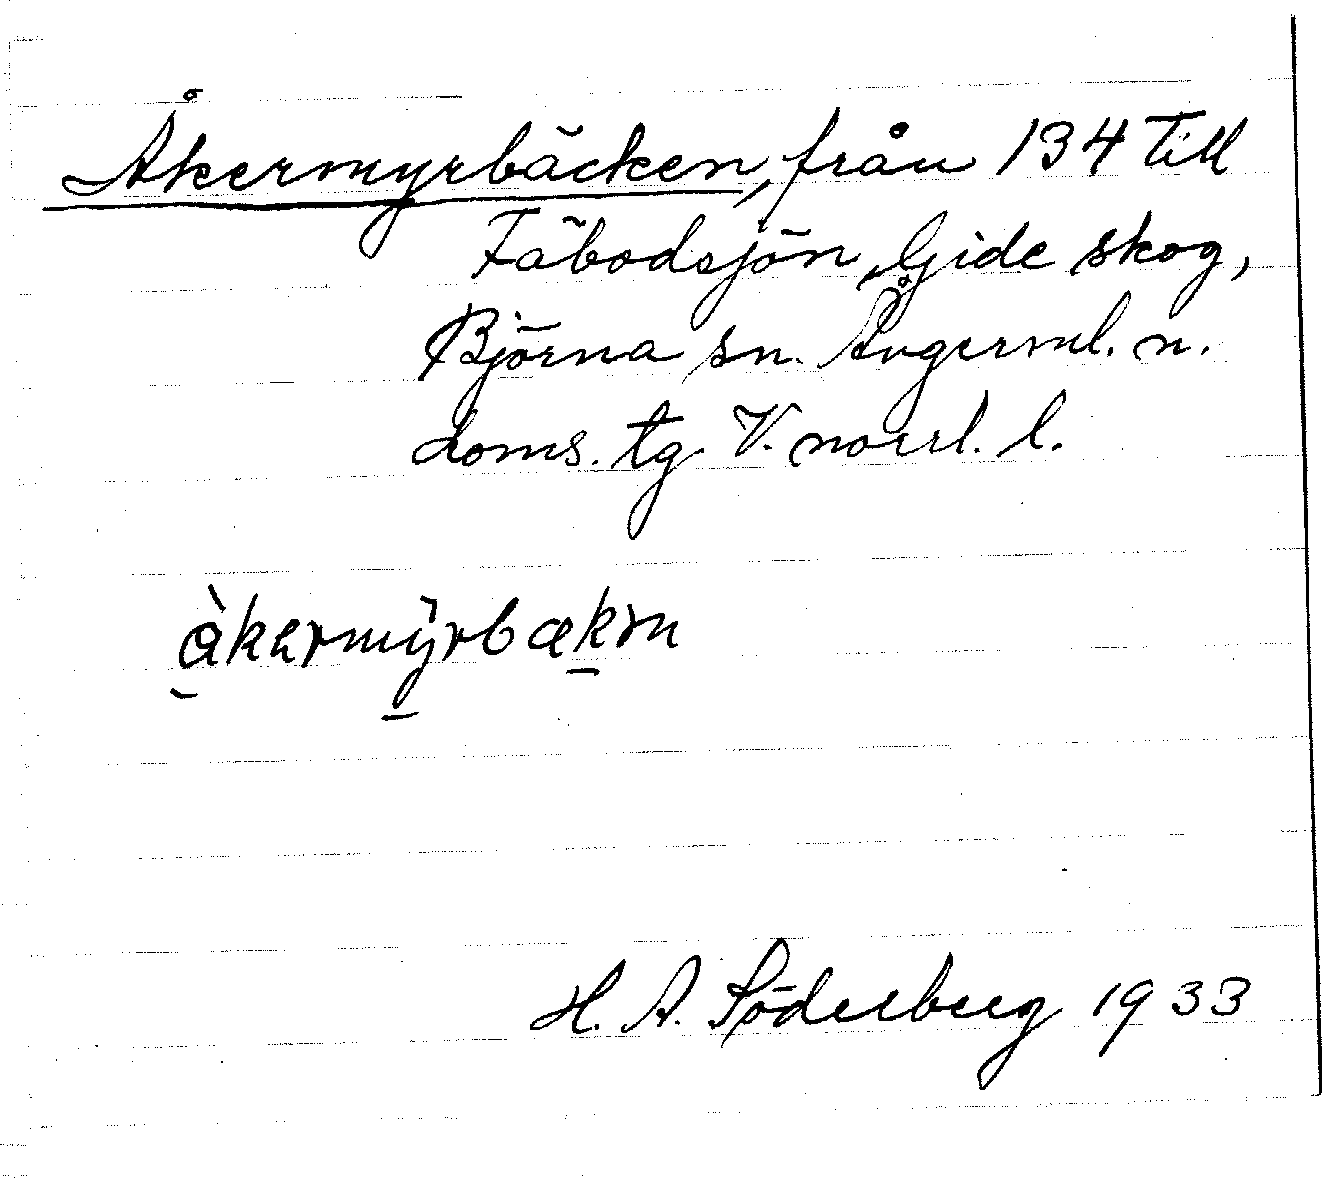 Åkermyrbäcken, från 134 till
Fäbodsjön, Gide skog,
Björna sn. Ångerml. n.
doms. tg. V. norrl. l.
åkermyrbækɴ
H. A. Söderberg 1933